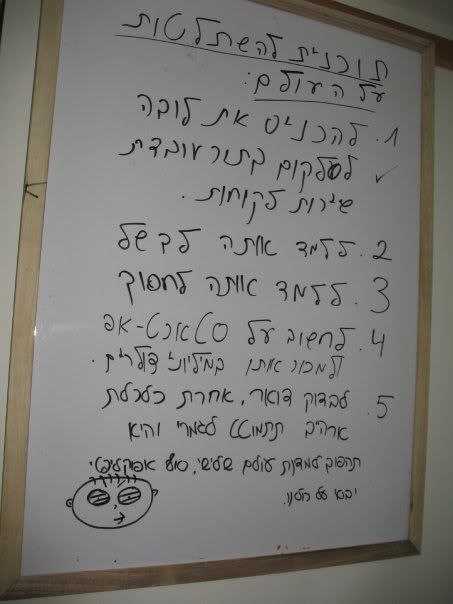 תוכנית להשתלטות
על העולם:
1. להכניס את לובה
לסלקום בתור עובדת
שירות לקוחות.
2. ללמד אותה לבשל
3. ללמד אותה לחסוך
4. לחשוב על סטארט-אפ
ולמכור אותו במיליוני דולרים.
5. לבדוק דואר, אחרת כלכלת
ארה"ב תתמוטט לגמרי והיא
תהפוך למדינת עולם שלישי, סוף אפוקליפטי
יבוא על כולנו.